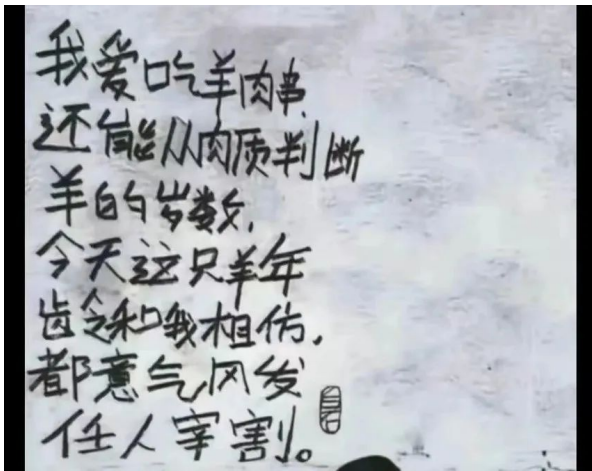 我爱吃羊肉串,
还能从肉质判断
羊的岁数,
今天这只羊年
龄和我相仿,
都意气风发
任人宰割。